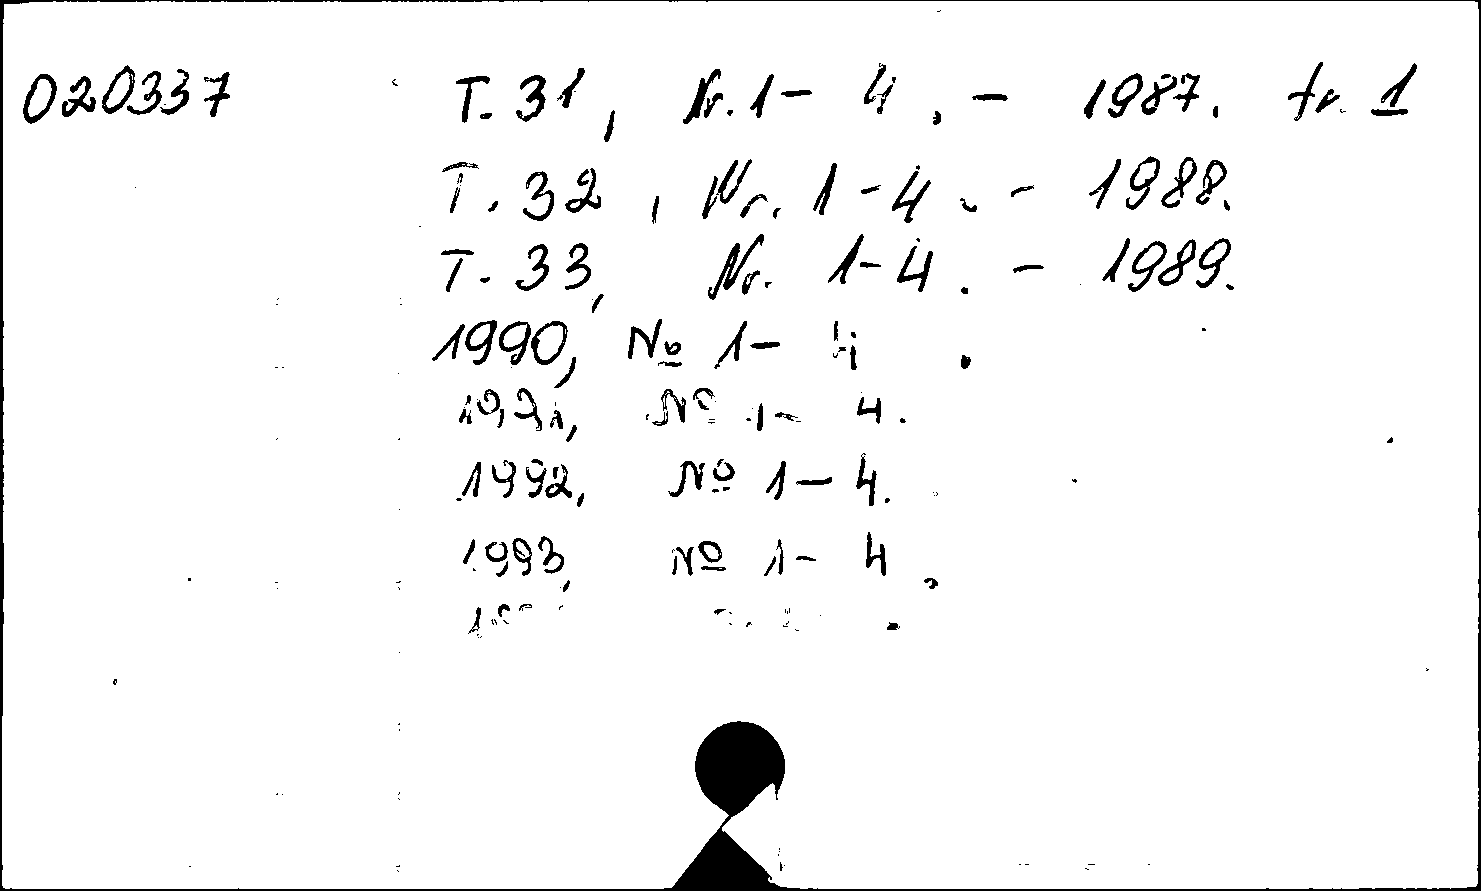 020337 T. 31, Nr. 1 - 4. - 1987. fr. 1
T. 32, Nr. 1 - 4. - 1988.
T. 33, Nr. 1 - 4. - 1989.
1990, № 1 - 4.
1991, № 1 - 4.
1992, № 1 - 4.
1993, № 1 - 4.